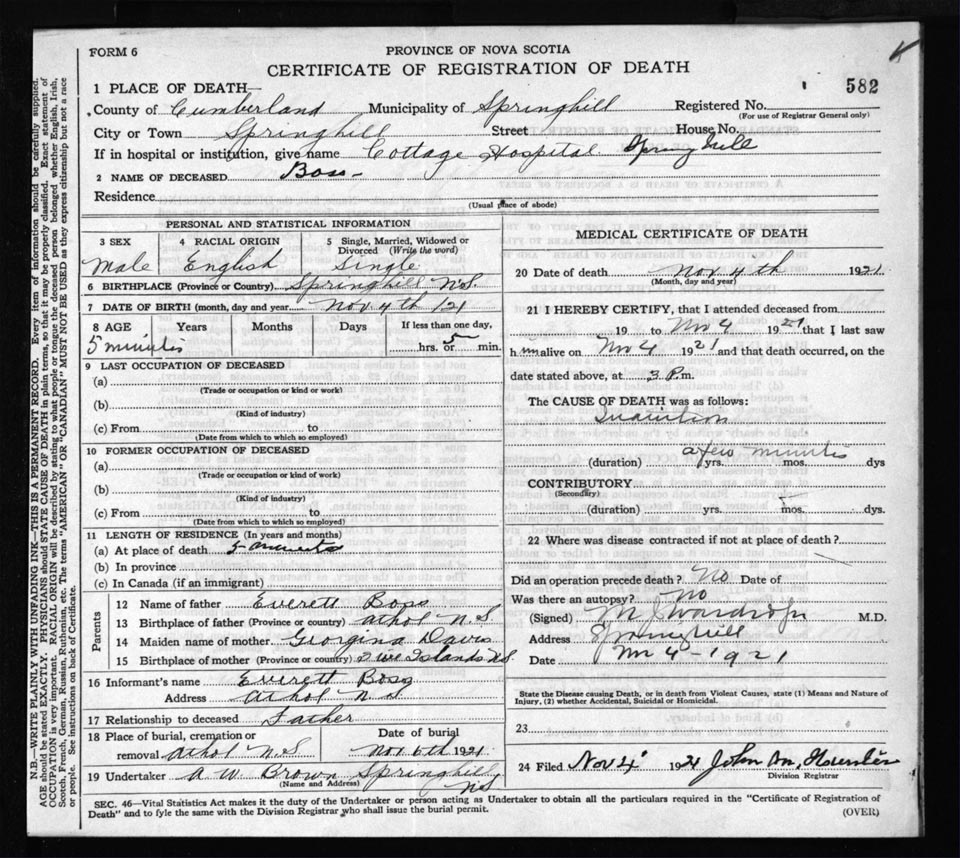 FORM 6
PROVINCE OF NOVA SCOTIA
CERTIFICATE OF REGISTRATION OF DEATH
582
1 PLACE OF DEATH
County of Cumberland Municipality of Springhill Registered No.
(For use of Registrar General only)
City or Town Springhill Street House No.
If in hospital or institution, give name Cottage Hospital Springhill
2 NAME OF DECEASED Boss
Residence
(Usual place of abode)
PERSONAL AND STATISTICAL INFORMATION
3 SEX 4 RACIAL ORIGIN 5 Single, Married, Widowed or Divorced (Write the word)
Male English Single
6 BIRTHPLACE (Province or Country) Springhill N.S.
7 DATE OF BIRTH (month, day and year) Nov 4th 121
8 AGE Years Months Days If less than one day,
5 minutes hrs. or 5 min.
9 LAST OCCUPATION OF DECEASED
(a)
(Trade or occupation or kind or work)
(b)
(Kind of industry)
(c) From to
(Date from which to which so employed)
10 FORMER OCCUPATION OF DECEASED
(a)
(Trade or occupation or kind of work)
(b)
(Kind of industry)
(c) From to
(Date from which to which so employed)
11 LENGTH OF RESIDENCE (In years and months)
(a) At place of death 5 minutes
(b) In province
(c) In Canada (if an immigrant)
Parents
12 Name of father Everett Boss
13 Birthplace of father (Province or country) Athol N.S
14 Maiden name of mother Georgina Davis
15 Birthplace of mother (Province or country) Five Islands N.S.
16 Informant's name Everett Boss
Address Athol N S
17 Relationship to deceased Father
18 Place of burial, cremation or removal Athol N.S
Date of burial Nov 6th 1921
19 Undertaker A. W. Brown Springhill N.S
(Name and Address)
MEDICAL CERTIFICATE OF DEATH
20 Date of death Nov 4th 1921
(Month, day and year)
21 I HEREBY CERTIFY, that I attended deceased from
19 to Nov 4 1921 that I last saw
h im alive on Nov 4 1921 and that death occurred, on the
date stated above, at 3 P.m.
The CAUSE OF DEATH was as follows:
Inanition
(duration) a few minutes yrs. mos. dys
CONTRIBUTORY
(Secondary)
(duration) yrs. mos. dys.
22 Where was disease contracted if not at place of death?
Did an operation precede death? No Date of
Was there an autopsy? No
(Signed) M.D.
Address Springhill
Date Nov 4 - 1921
State the Disease causing Death, or in death from Violent Causes, state (1) Means and Nature of
Injury, (2) whether Accidental, Suicidal or Homicidal.
23
24 Filed Nov 4 1921 John M.
Division Registrar
SEC. 46—Vital Statistics Act makes it the duty of the Undertaker or person acting as Undertaker to obtain all the particulars required in the "Certificate of Registration of
Death" and to fyle the same with the Division Registrar who shall issue the burial permit. (OVER)
N.B.—WRITE PLAINLY WITH UNFADING INK—THIS IS A PERMANENT RECORD. Every item of information should be carefully supplied.
AGE should be stated EXACTLY. PHYSICIANS should STATE CAUSE OF DEATH in plain terms, so that it may be properly classified. Exact statement of
OCCUPATION is very important. RACIAL ORIGIN will be described by stating to what people or tongue the deceased person belonged whether English, Irish,
Scotch, French, German, Russian, Ruthenian, etc. The terms "AMERICAN" OR "CANADIAN" MUST NOT BE USED as they express citizenship but not a race
or people. See instructions on back of Certificate.